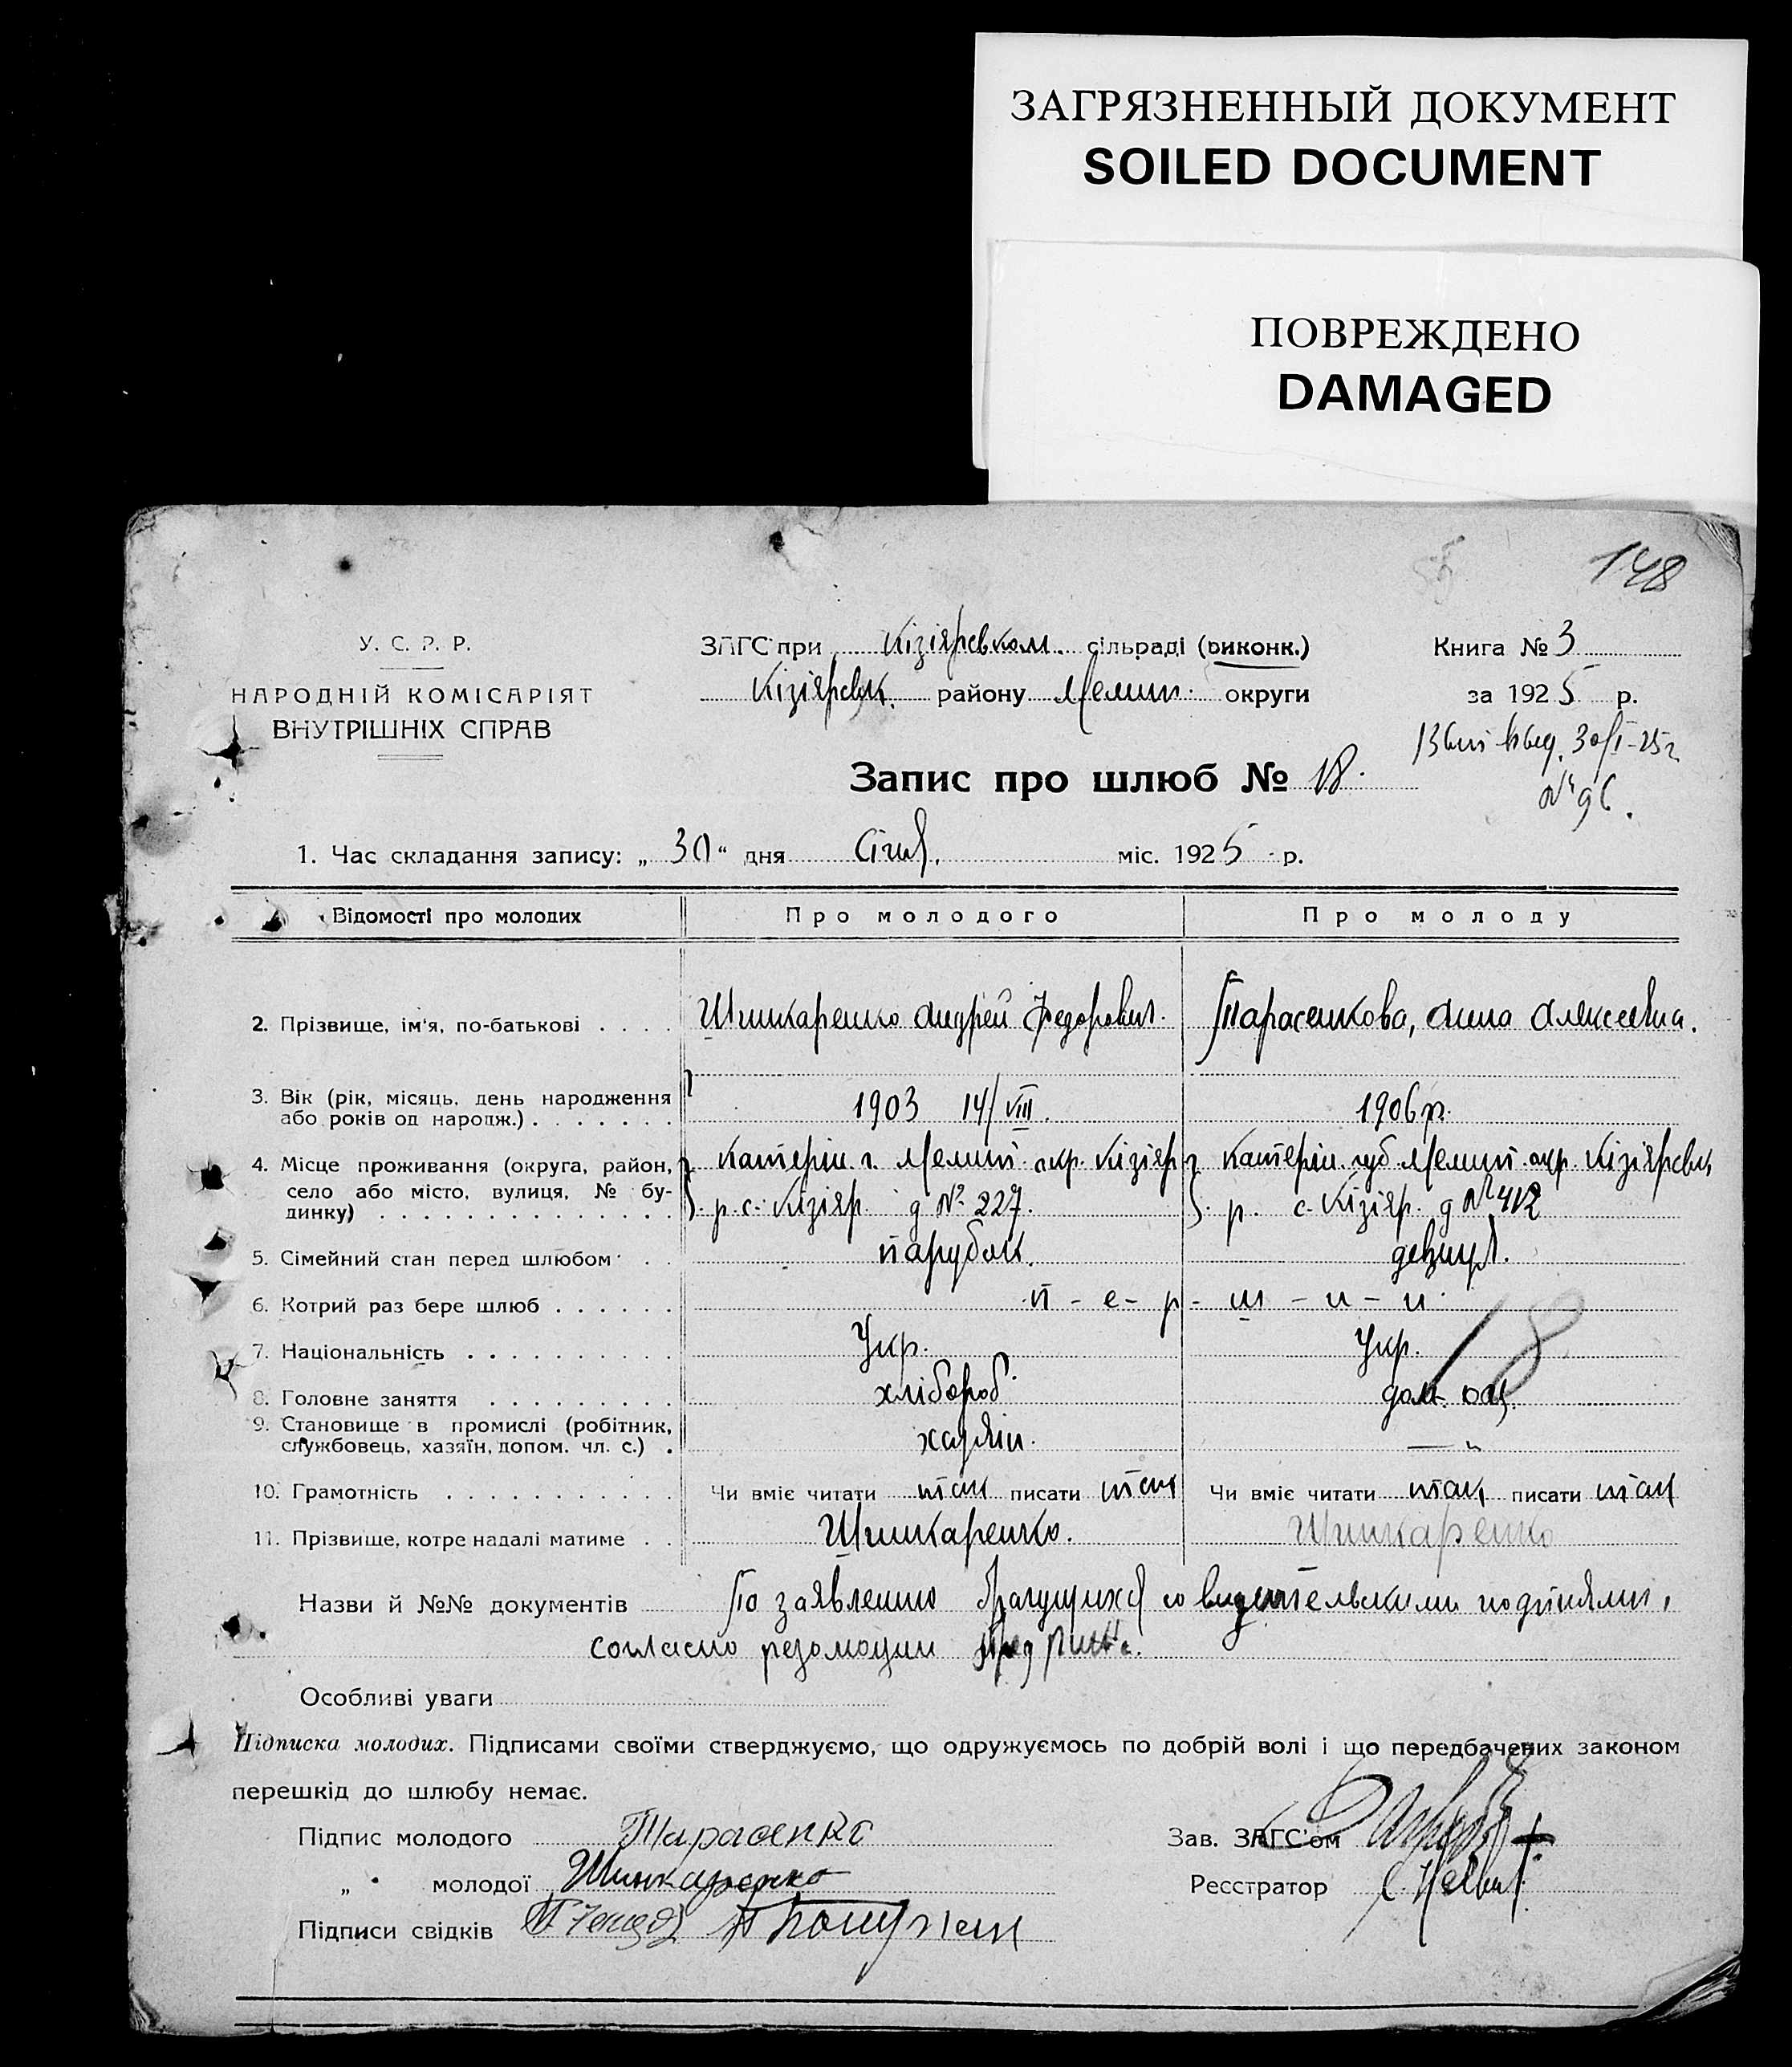 ЗАГРЯЗНЕННЫЙ ДОКУМЕНТ
SOILED DOCUMENT
ПОВРЕЖДЕНО
DAMAGED
148
У. С. Р. Р.
НАРОДНІЙ КОМІСАРІЯТ
ВНУТРІШНІХ СПРАВ
ЗАГС при Кізіярвском. сільраді (виконк.)
Кізіярвск. району Мелит. округи
Книга № 3
за 1925 р.
30/I-25 г.
№ 96.
Запис про шлюб № 18.
1. Час складання запису: „ 30 “ дня Січня. міс. 1925 р.
Відомості про молодих Про молодого Про молоду
2. Прізвище, ім'я, по-батькові . . . . Шинкаренко Андрей Федорович. Тарасенкова, Анна Алексеевна.
3. Вік (рік, місяць, день народження
або років од народж.) . . . . . . . 1903 14/VIII. 1906 р.
4. Місце проживання (округа, район, Катерін. г. Мелит. окр. Кізіяр Катерін. губ. Мелит. окр. Кізіярвск
село або місто, вулиця, № бу-
динку) . . . . . . . . . . . . . . р. с. Кізіяр. д № 227. р. с. Кізіяр. д № 412
5. Сімейний стан перед шлюбом . . парубок. девиця.
6. Котрий раз бере шлюб . . . . . . п - е - р - ш - и - и
7. Національність . . . . . . . . . . Укр. Укр.
18
8. Головне заняття . . . . . . . . . хлібороб дом. хоз.
9. Становище в промислі (робітник,
службовець, хазяїн, допом. чл. с.) . хазяїн. — „
10. Грамотність . . . . . . . . . . . Чи вміє читати так писати так Чи вміє читати так писати так
11. Прізвище, котре надалі матиме . . Шинкаренко. Шинкаренко
Назви й №№ документів По заявлению брачущихся со подписями,
согласно резолюции Пред
Особливі уваги
Підписка молодих. Підписами своїми стверджуємо, що одружуємось по добрій волі і що передбачених законом
перешкід до шлюбу немає.
Підпис молодого Тарасенко Зав. ЗАГС'ом
„ молодої Шинкаренко Реєстратор
Підписи свідків